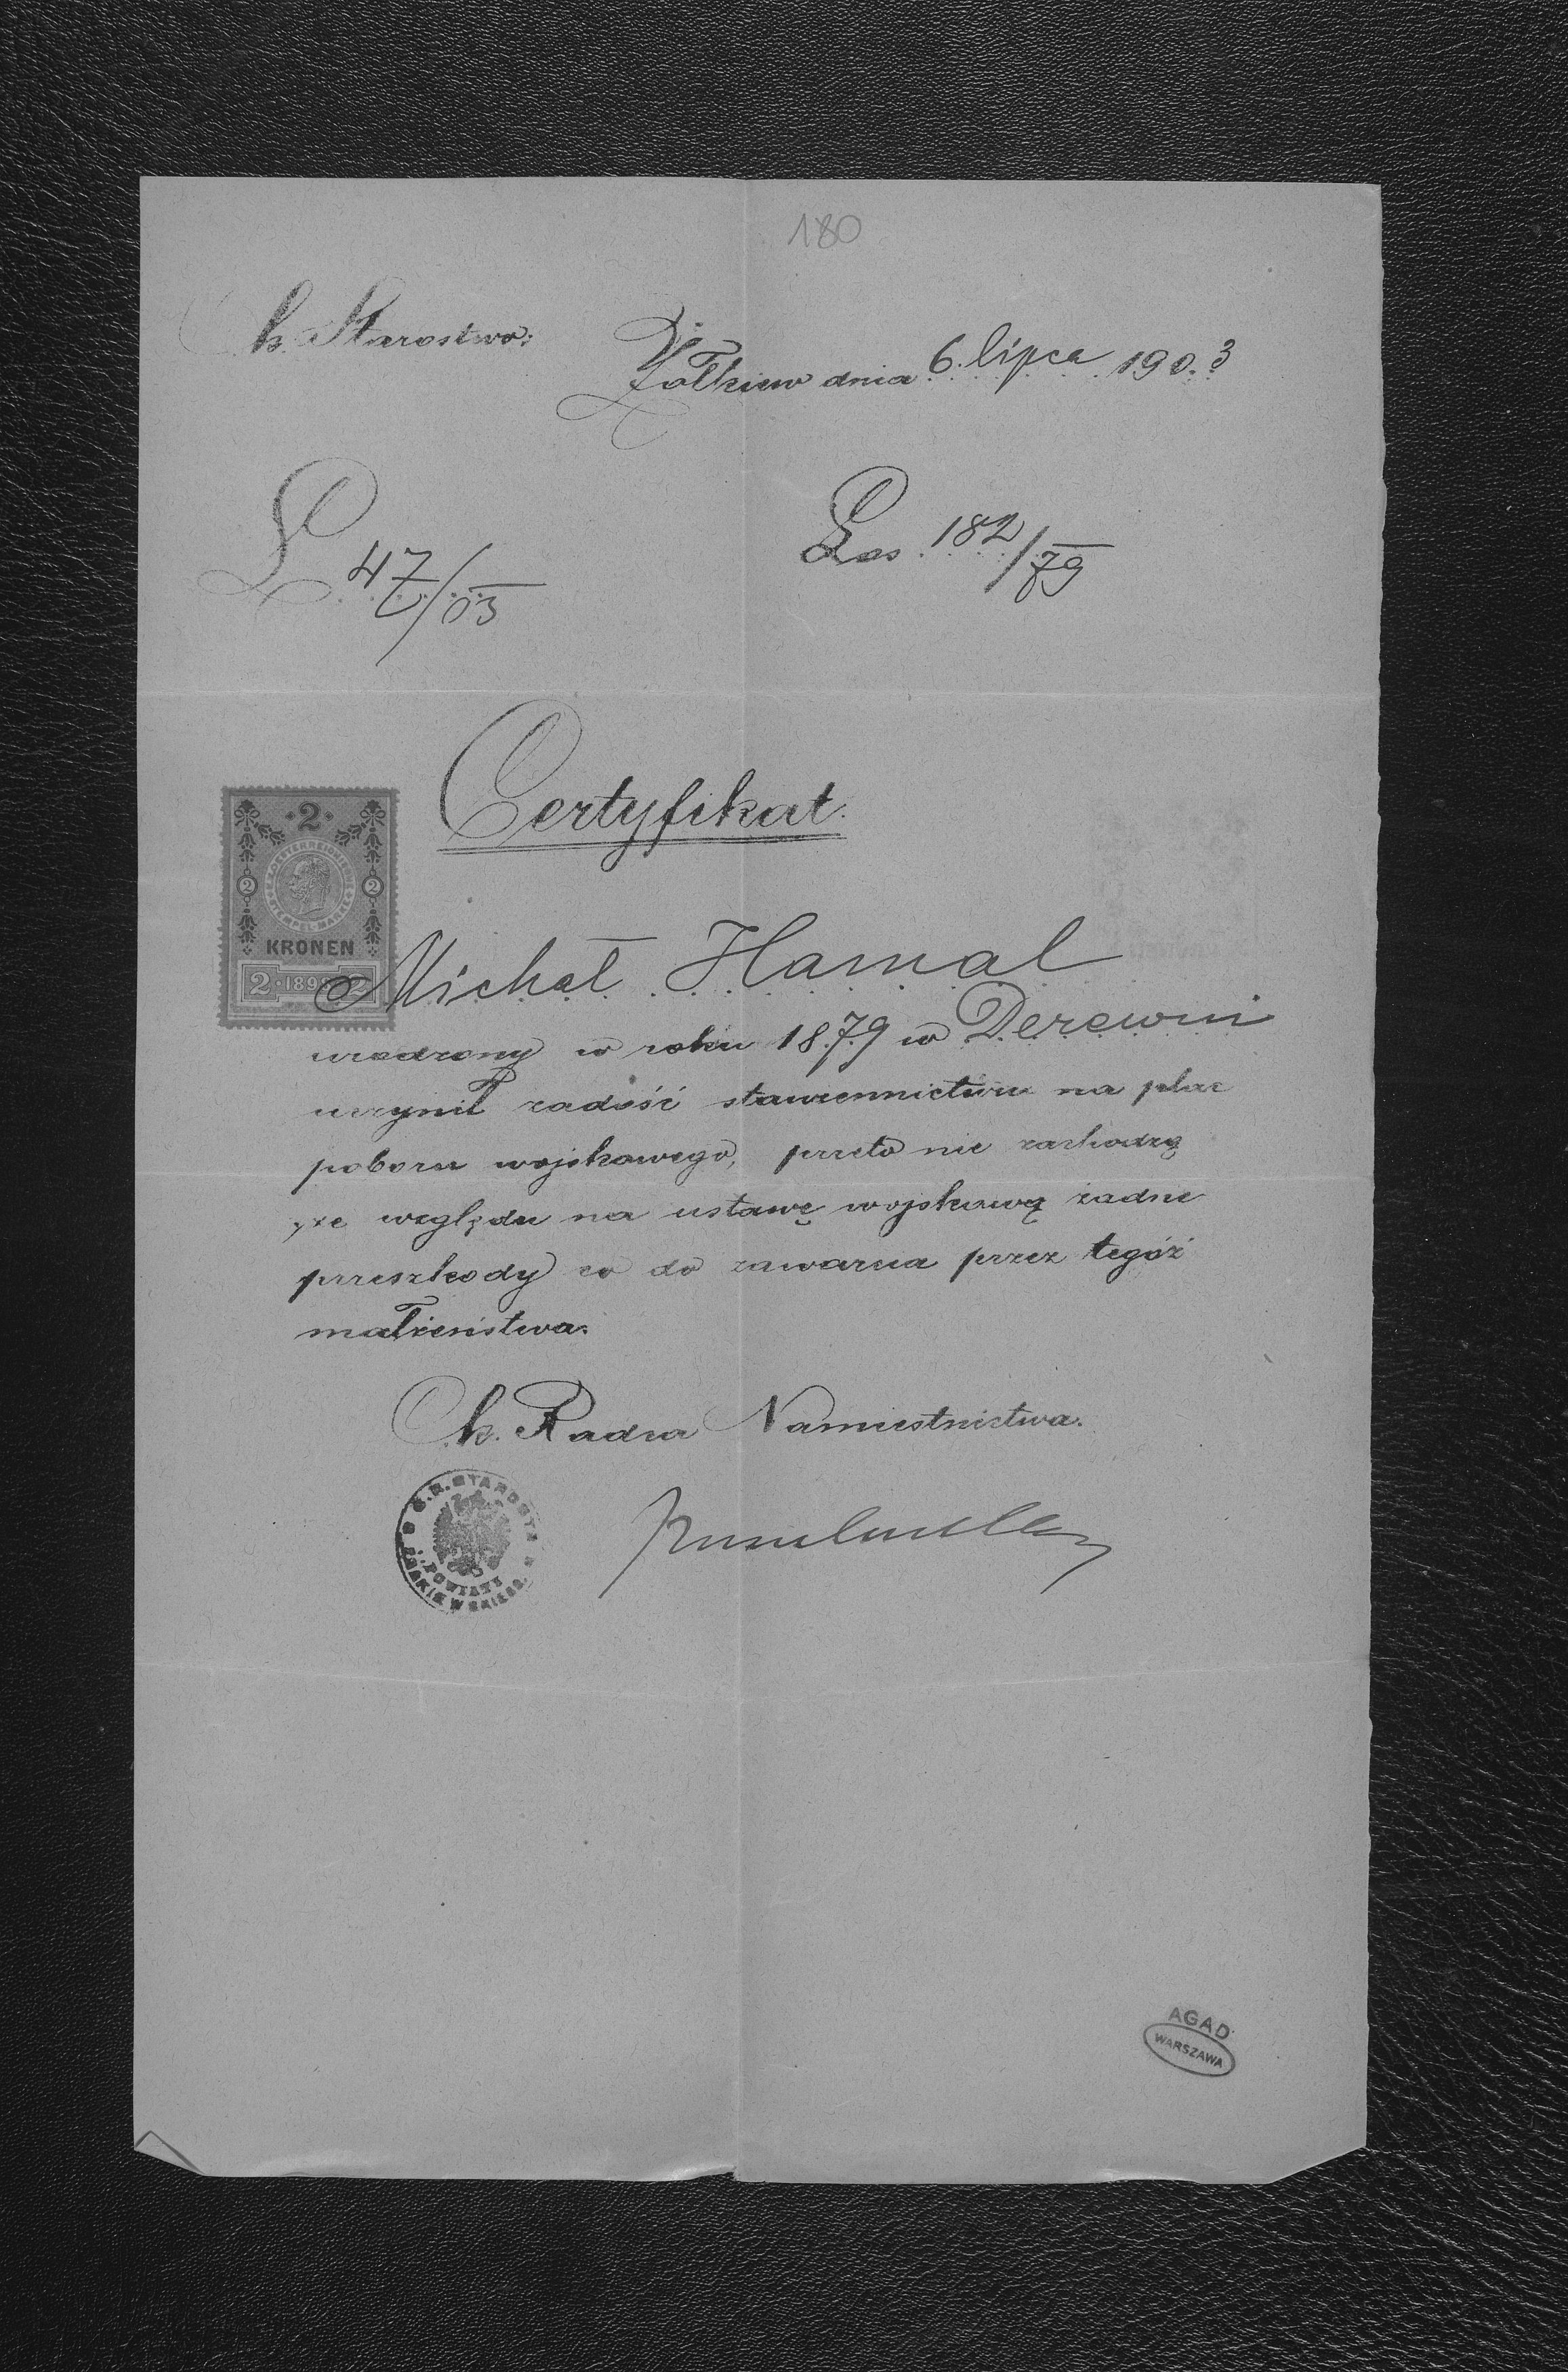 180
C. k. Starostwo:
Żółkiew dnia 6. lipca 1903
L 47/03
Los 182/79
Certyfikat.
2
2 2
KRONEN
2 · 1898 · 2
Michał Hamal
urodzony w roku 1879 w Derewni
uczynił zadość stawiennictwu na plac
poboru wojskowego, przeto nie zachodzą
ze względu na ustawę wojskową żadne
przeszkody co do zawarcia przez tegoż
małżeństwa.
C. k. Radca Namiestnictwa.
C.K. STAROSTA
POWIATU
ŻÓŁKIEWSKIEGO
AGAD
WARSZAWA